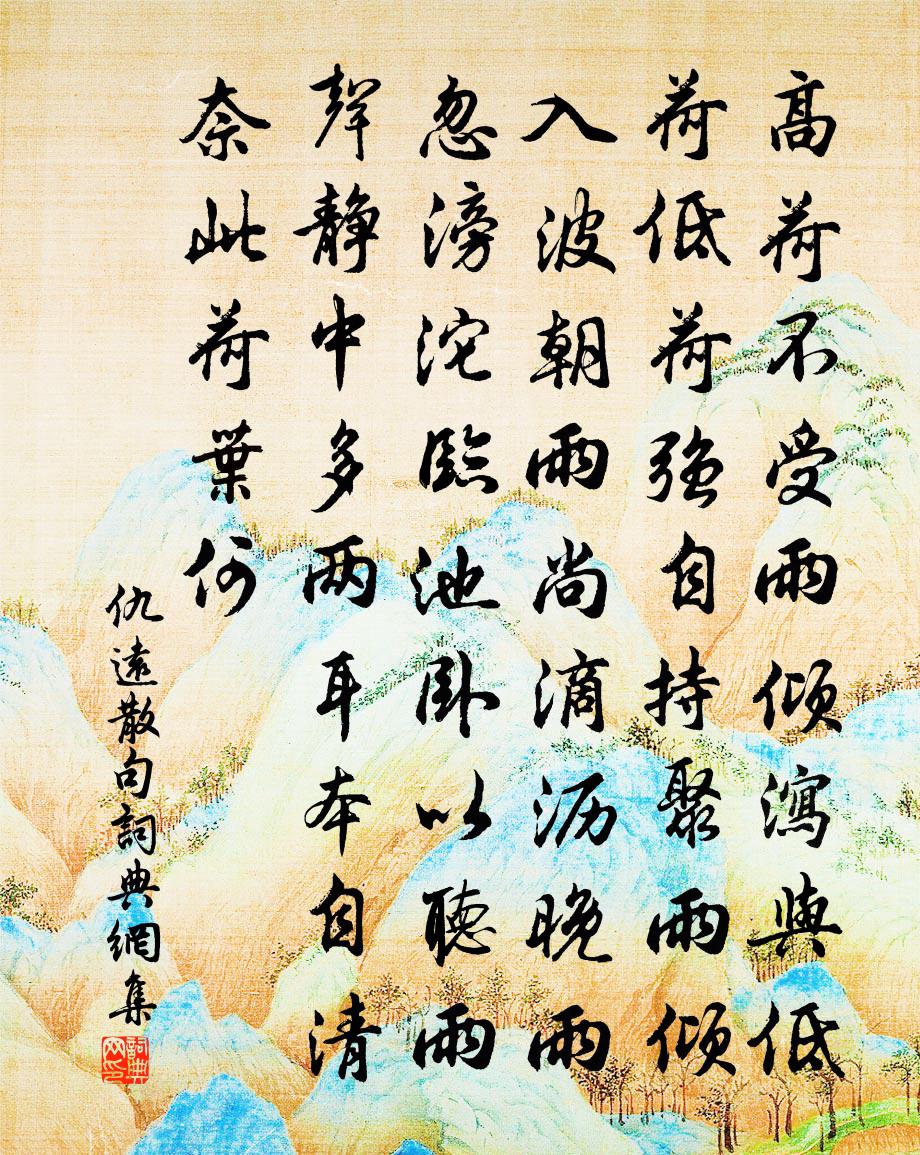 高荷不受雨倾瀉與低
荷低荷强自持聚雨倾
入波朝雨尚滴沥晚雨
忽滂沱臨池卧以聽雨
聲静中多两耳本自清
奈此荷葉何
仇遠散句詞典網集
詞典网印